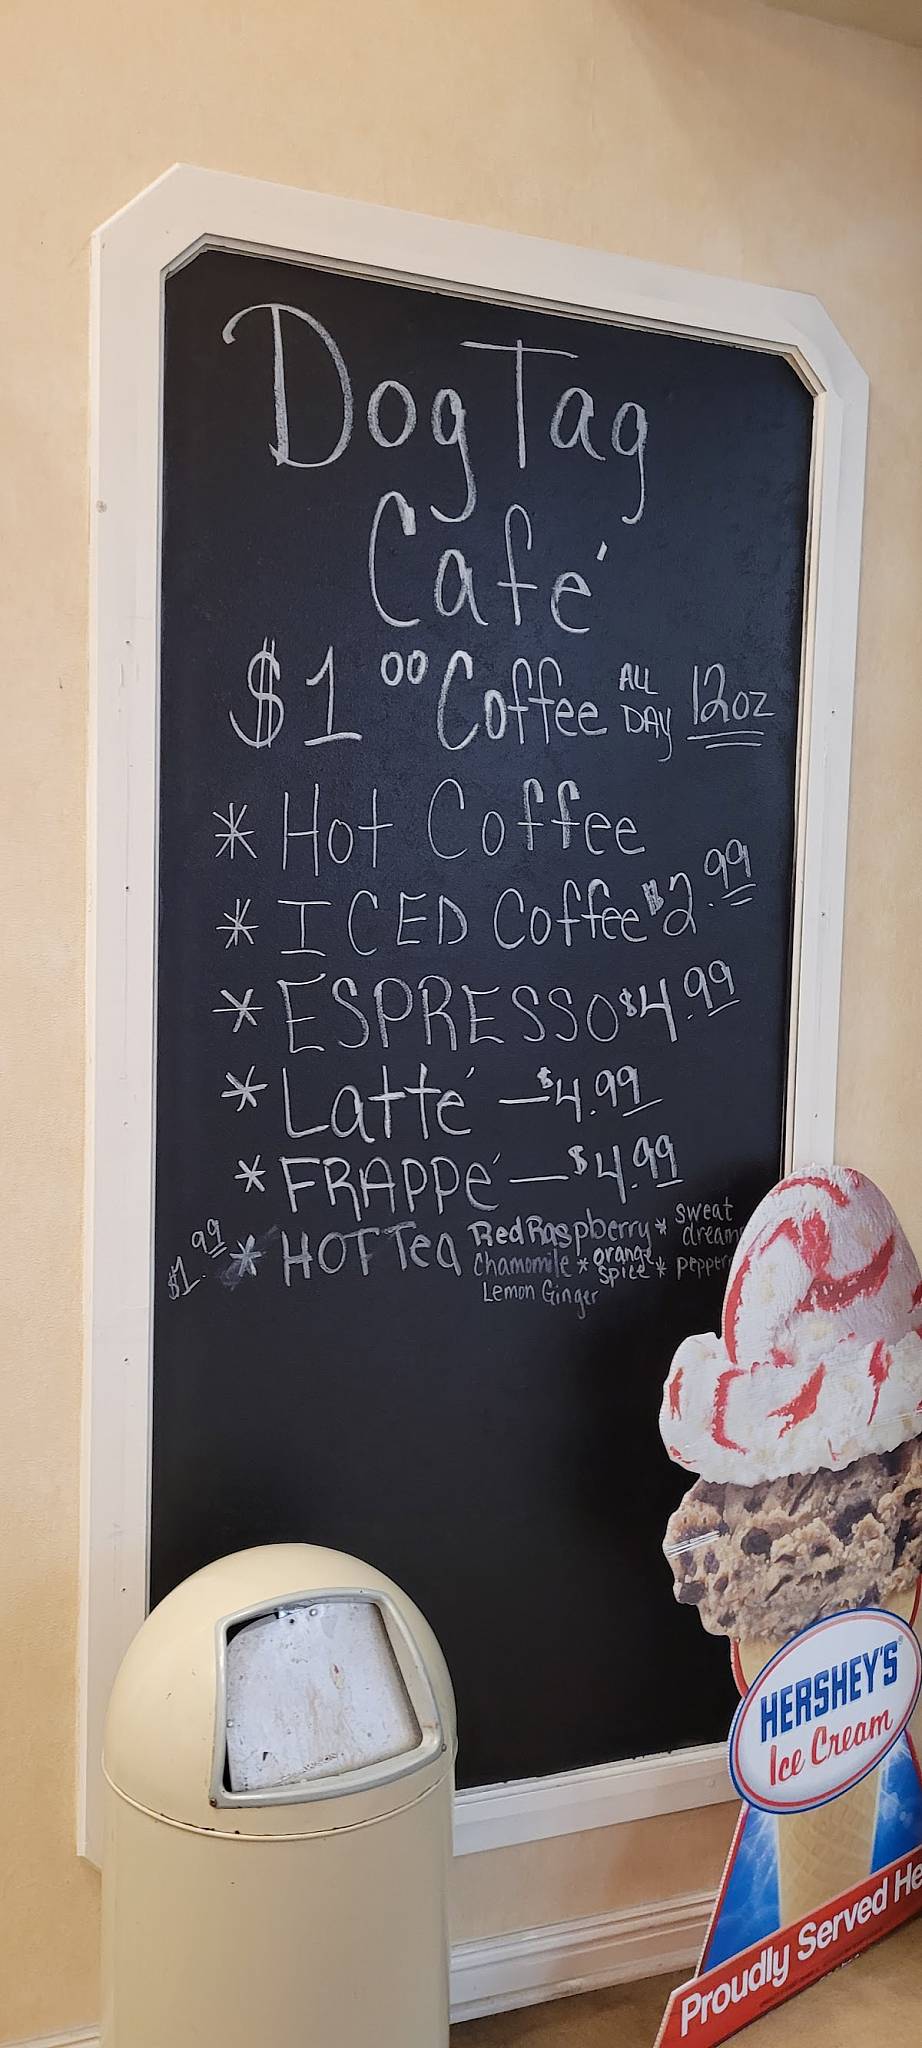 Dog Tag
Café
$1 00 Coffee ALL DAY 12oz
* Hot Coffee
* ICED Coffee $2.99
* ESPRESSO $4.99
* Latté — $4.99
* FRAPPÉ — $4.99
$1.99 * HOT Tea Red Raspberry * sweat dream
Chamomile * orange spice * pepper
Lemon Ginger
HERSHEY'S
Ice Cream
Proudly Served He